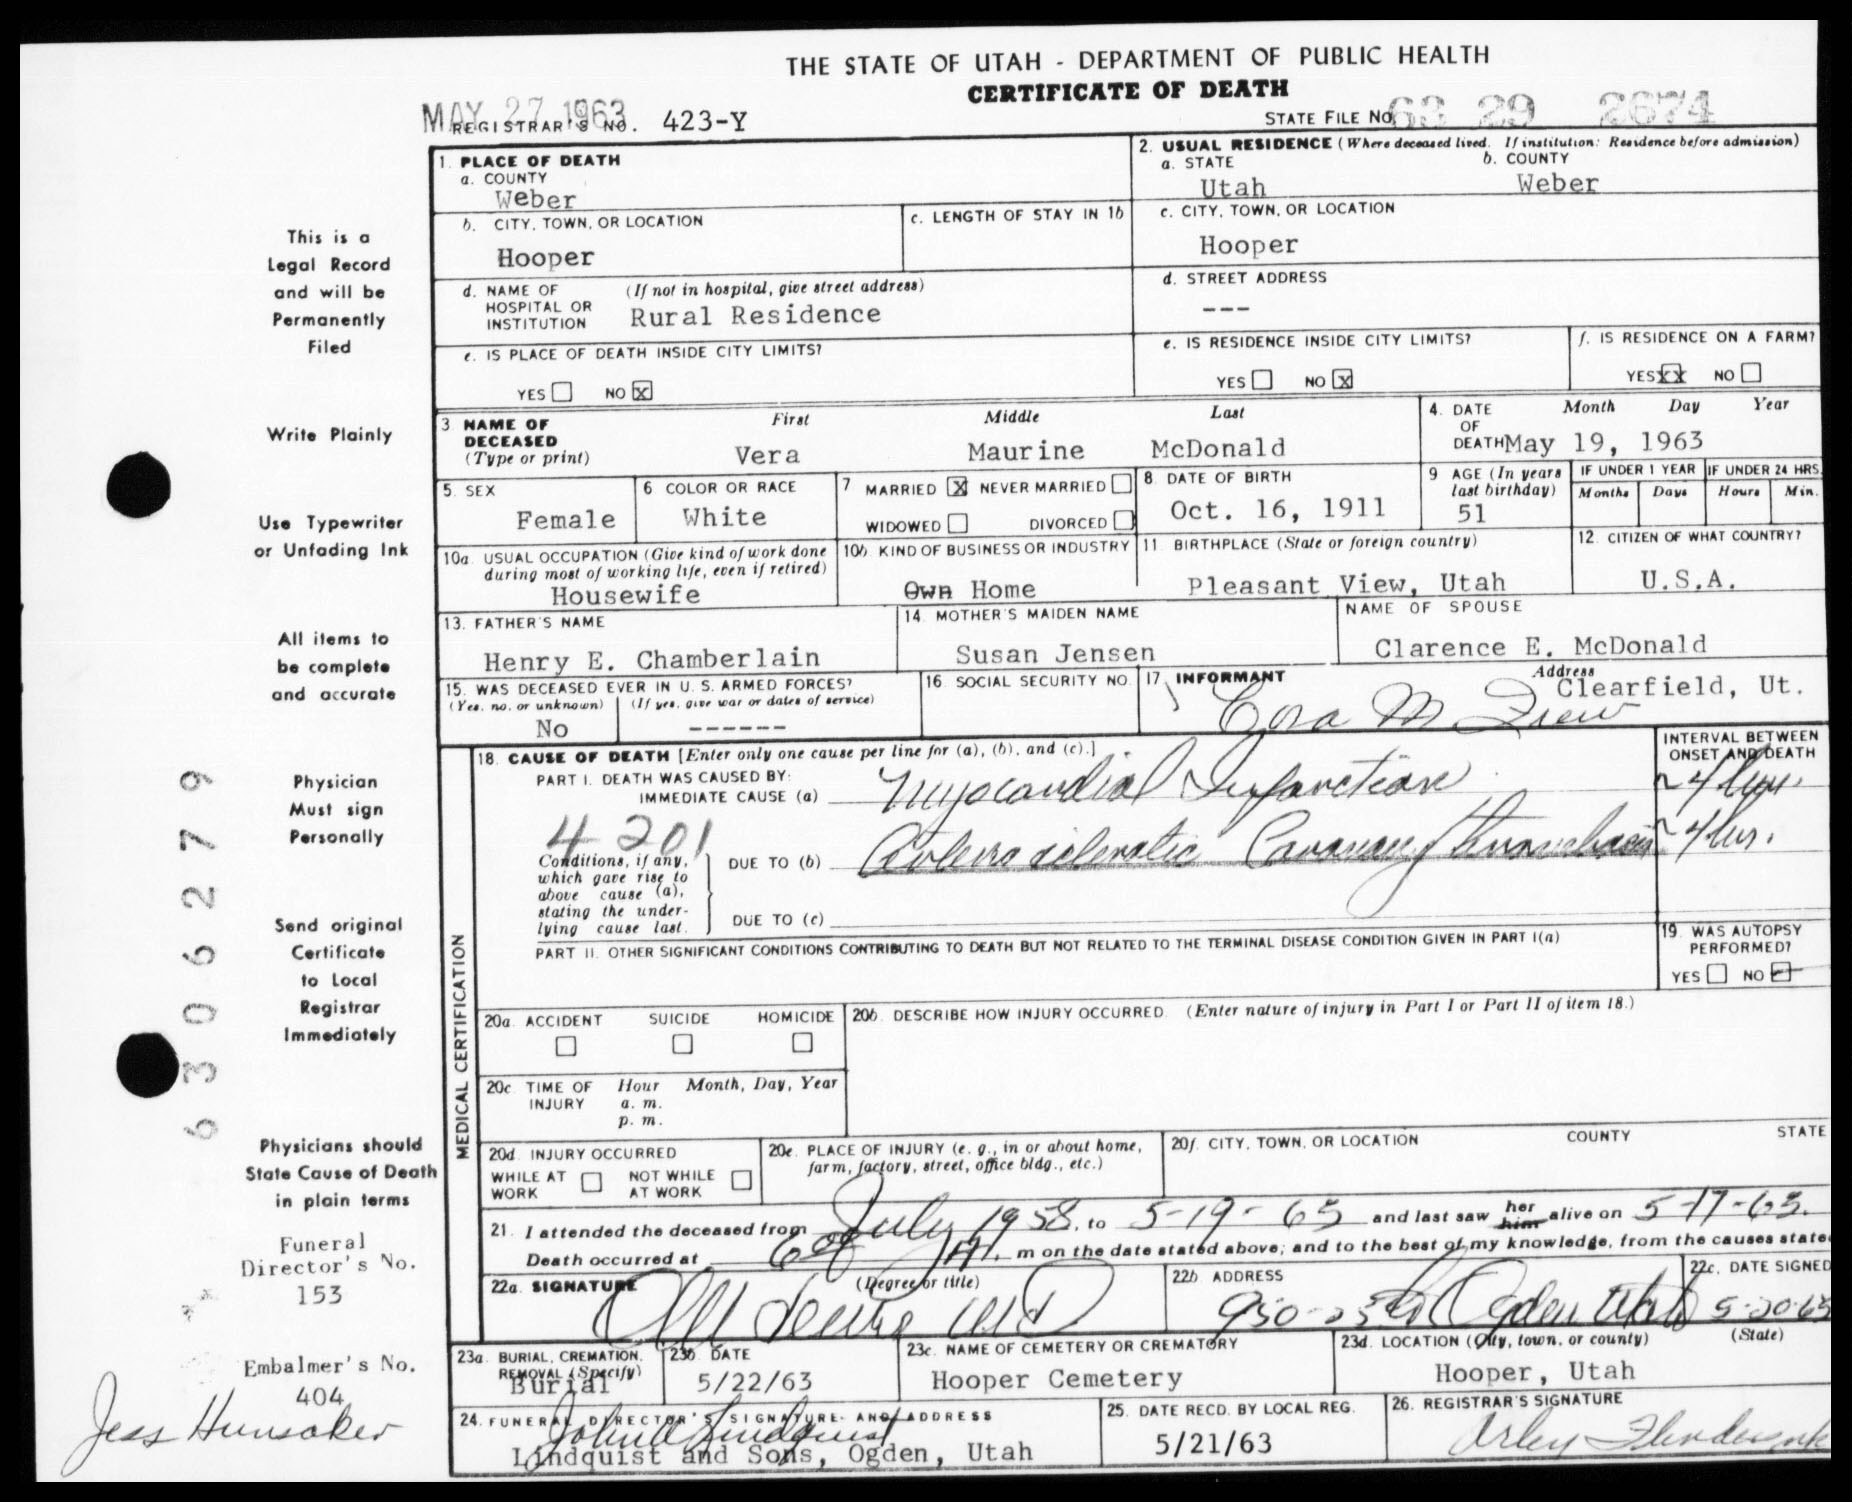 THE STATE OF UTAH - DEPARTMENT OF PUBLIC HEALTH
CERTIFICATE OF DEATH
MAY 27 1963
REGISTRAR'S NO. 423-Y
STATE FILE NO. 63 29 2674
1. PLACE OF DEATH
a. COUNTY
Weber
2. USUAL RESIDENCE (Where deceased lived. If institution: Residence before admission)
a. STATE b. COUNTY
Utah Weber
b. CITY, TOWN, OR LOCATION
Hooper
c. LENGTH OF STAY IN 1b
c. CITY, TOWN, OR LOCATION
Hooper
d. NAME OF HOSPITAL OR INSTITUTION (If not in hospital, give street address)
Rural Residence
d. STREET ADDRESS
---
e. IS PLACE OF DEATH INSIDE CITY LIMITS?
YES NO X
e. IS RESIDENCE INSIDE CITY LIMITS?
YES NO X
f. IS RESIDENCE ON A FARM?
YES XX NO
3 NAME OF DECEASED (Type or print)
First Middle Last
Vera Maurine McDonald
4. DATE OF DEATH Month Day Year
May 19, 1963
5. SEX
Female
6 COLOR OR RACE
White
7 MARRIED X NEVER MARRIED
WIDOWED DIVORCED
8. DATE OF BIRTH
Oct. 16, 1911
9 AGE (In years last birthday)
51
IF UNDER 1 YEAR IF UNDER 24 HRS.
Months Days Hours Min.
10a. USUAL OCCUPATION (Give kind of work done during most of working life, even if retired)
Housewife
10b. KIND OF BUSINESS OR INDUSTRY
Own Home
11. BIRTHPLACE (State or foreign country)
Pleasant View, Utah
12. CITIZEN OF WHAT COUNTRY?
U.S.A.
13. FATHER'S NAME
Henry E. Chamberlain
14. MOTHER'S MAIDEN NAME
Susan Jensen
NAME OF SPOUSE
Clarence E. McDonald
15. WAS DECEASED EVER IN U.S. ARMED FORCES?
(Yes, no, or unknown) (If yes, give war or dates of service)
No ------
16. SOCIAL SECURITY NO.
17. INFORMANT Address
Cora M. Frew Clearfield, Ut.
18. CAUSE OF DEATH [Enter only one cause per line for (a), (b), and (c).]
INTERVAL BETWEEN ONSET AND DEATH
PART I. DEATH WAS CAUSED BY:
IMMEDIATE CAUSE (a) Myocardial Infarction ~4 hrs.
4201
Conditions, if any, which gave rise to above cause (a), stating the underlying cause last.
DUE TO (b) Arteriosclerotic Coronary thrombosis ~4 hrs.
DUE TO (c)
PART II. OTHER SIGNIFICANT CONDITIONS CONTRIBUTING TO DEATH BUT NOT RELATED TO THE TERMINAL DISEASE CONDITION GIVEN IN PART I(a)
19. WAS AUTOPSY PERFORMED?
YES NO
MEDICAL CERTIFICATION
20a. ACCIDENT SUICIDE HOMICIDE
20b. DESCRIBE HOW INJURY OCCURRED. (Enter nature of injury in Part I or Part II of item 18.)
20c. TIME OF INJURY Hour Month, Day, Year
a. m.
p. m.
20d. INJURY OCCURRED
WHILE AT WORK NOT WHILE AT WORK
20e. PLACE OF INJURY (e. g., in or about home, farm, factory, street, office bldg., etc.)
20f. CITY, TOWN, OR LOCATION COUNTY STATE
21. I attended the deceased from July 1958, to 5-19-63 and last saw her him alive on 5-17-63.
Death occurred at m on the date stated above; and to the best of my knowledge, from the causes stated
22a. SIGNATURE (Degree or title)
MD
22b. ADDRESS
Ogden Utah
22c. DATE SIGNED
5-20-63
23a. BURIAL, CREMATION, REMOVAL (Specify)
Burial
23b. DATE
5/22/63
23c. NAME OF CEMETERY OR CREMATORY
Hooper Cemetery
23d. LOCATION (City, town, or county) (State)
Hooper, Utah
24. FUNERAL DIRECTOR'S SIGNATURE AND ADDRESS
John A Lindquist
Lindquist and Sons, Ogden, Utah
25. DATE RECD. BY LOCAL REG.
5/21/63
26. REGISTRAR'S SIGNATURE
Arley
This is a
Legal Record
and will be
Permanently
Filed
Write Plainly
Use Typewriter
or Unfading Ink
All items to
be complete
and accurate
Physician
Must sign
Personally
Send original
Certificate
to Local
Registrar
Immediately
Physicians should
State Cause of Death
in plain terms
Funeral
Director's No.
153
Embalmer's No.
404
Jess Hunsaker
6306279